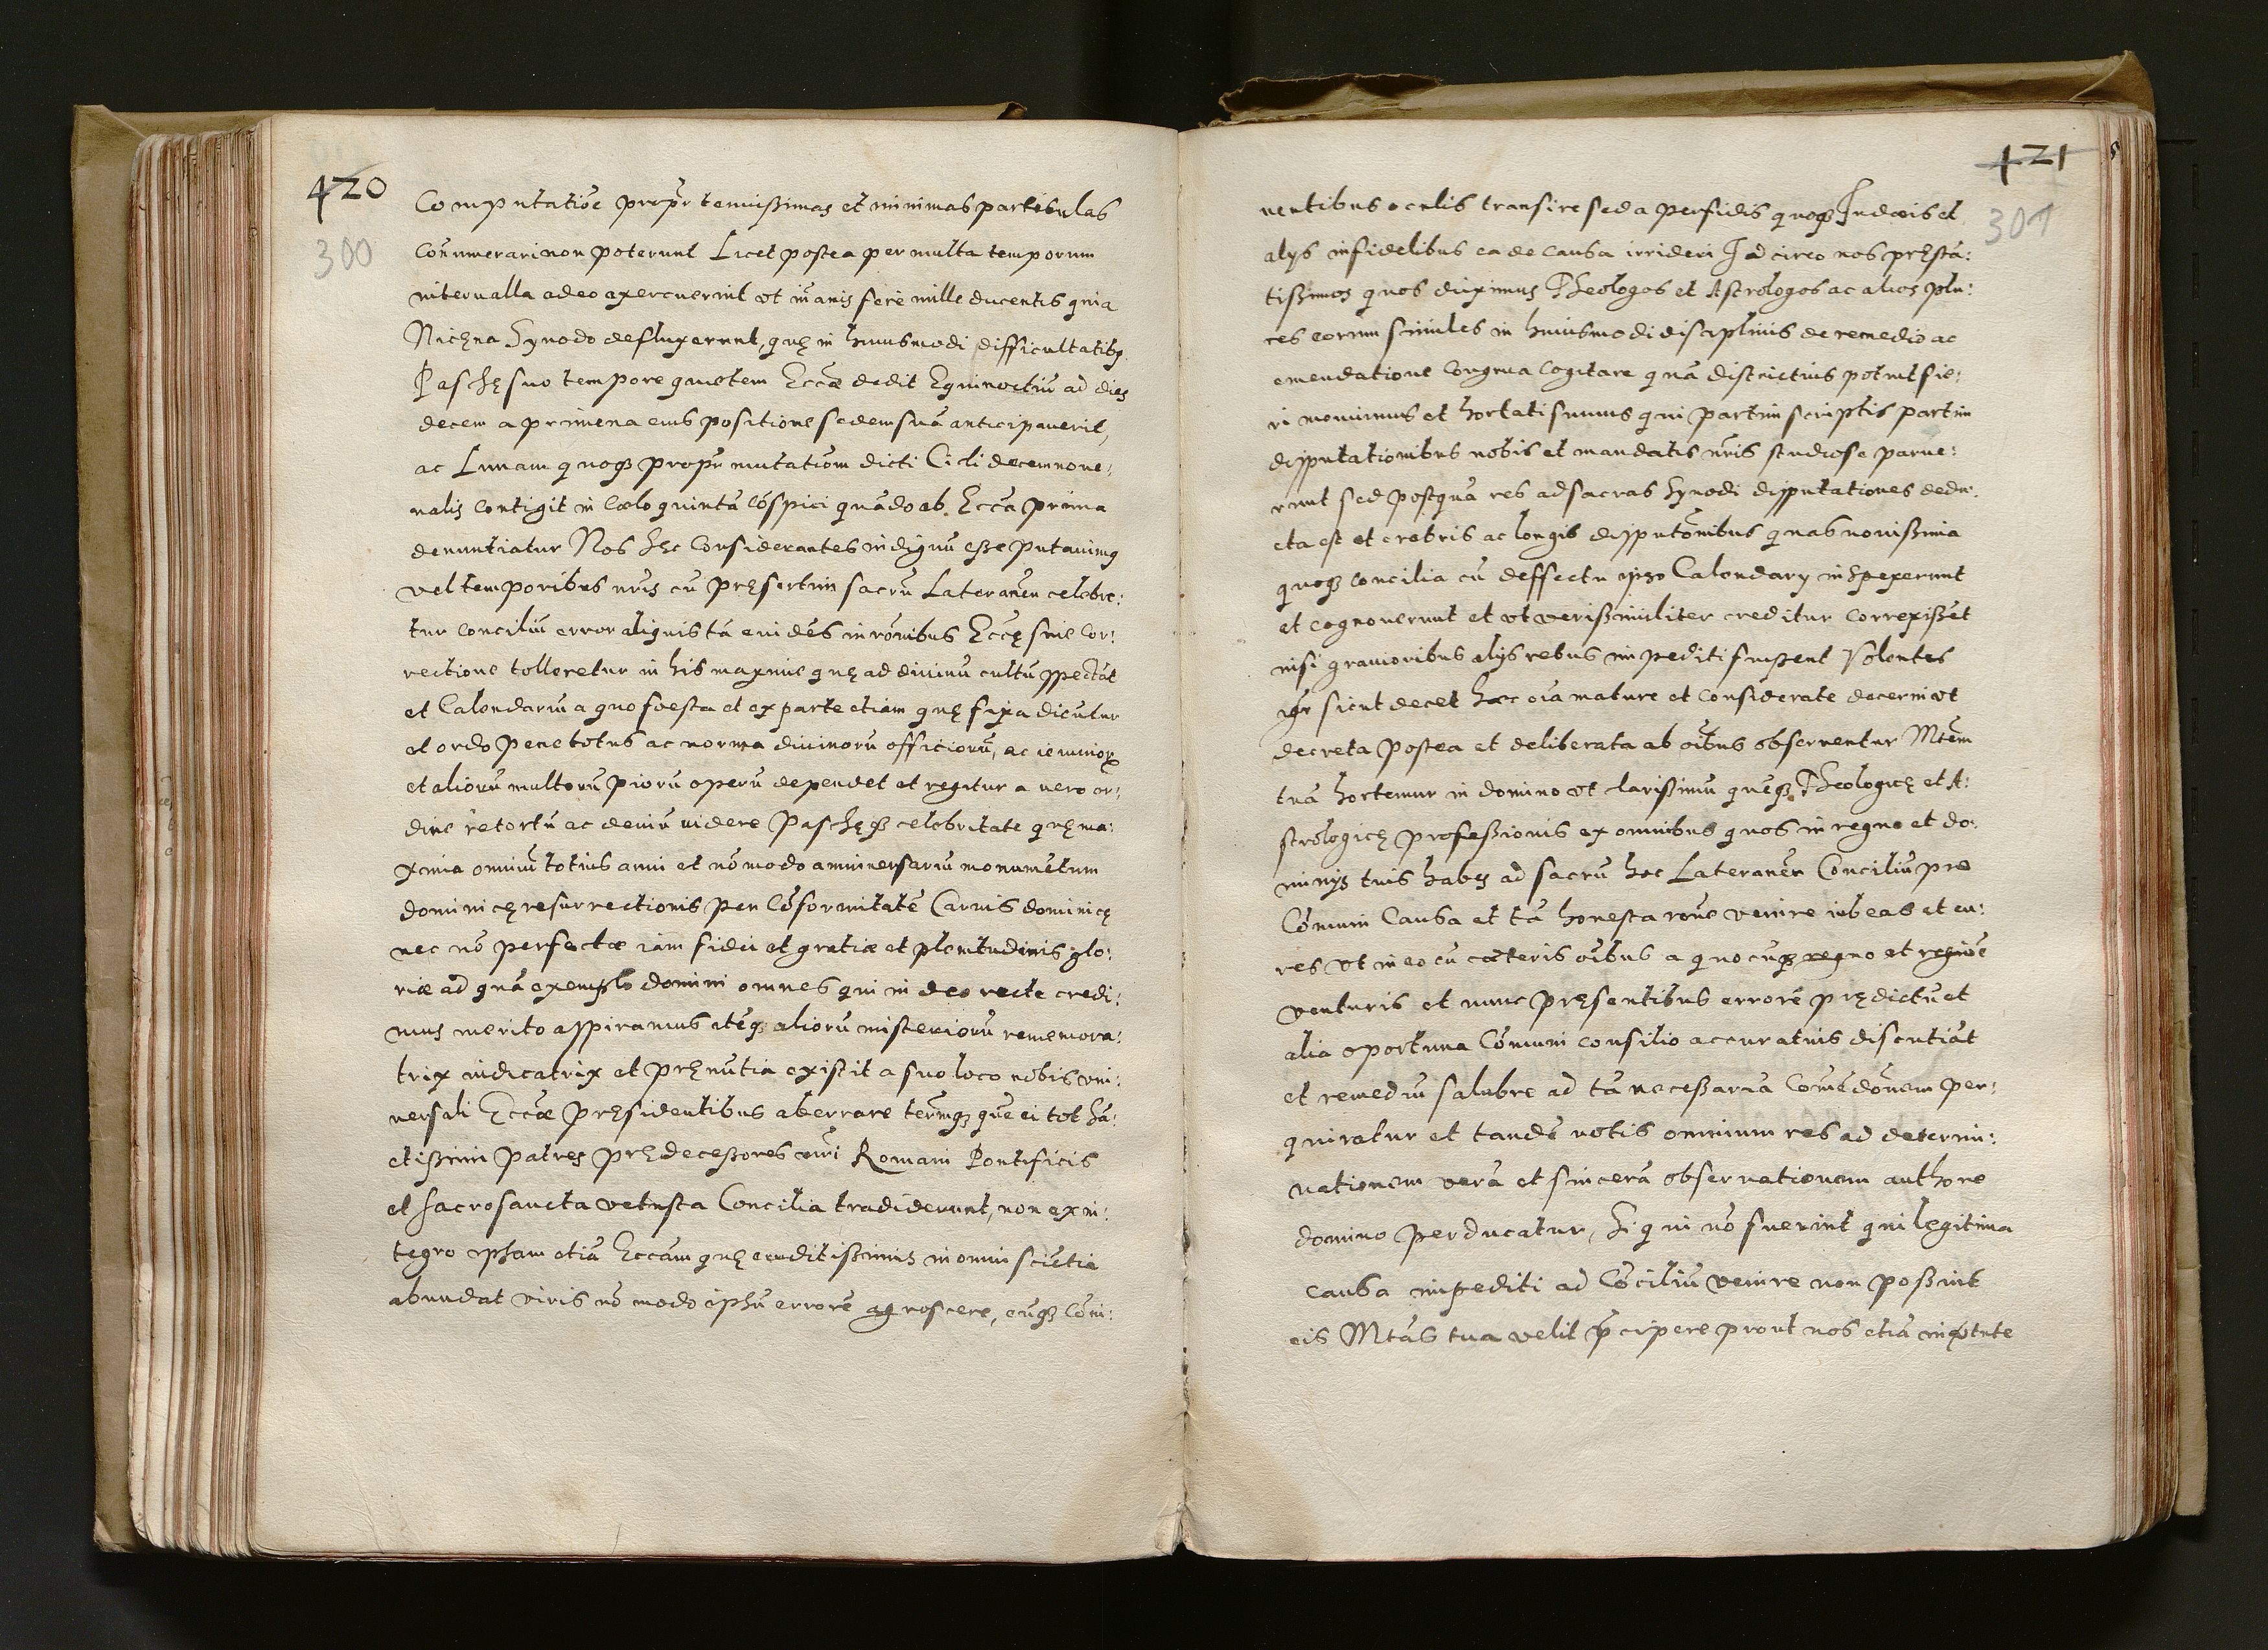 420
300
Computatiōe propr̄ tenuißimas et minimas partibulas
coñumerari non poterunt Licet postea per multa temporum
interualla adeo axercuerint vt iñ anis fere mille ducentis quia
Nicęna Synodo defluxerunt, quę in huiusmodi difficultatibȝ
Paschę suo tempore quietem Ecc̄æ dedit Equinoctiū ad dies
decem a primena eius positione sedem suā anticipauerit,
ac Lunam quoqȝ propr̄ mutatiōm dicti Cicli decemnoue:
nalis contigit in Cœlo quintā cōspici quādo ab Ecc̄a prima
denuntiatur Nos hęc considerantes indignū eße putauimꝰ
vel temporibus nr̄is cū pręsertim sacrū Lateraneñ celebre:
tur concilium error aliquis tā euidēs in rōnibus Ecc̄ę sine cor:
rectione tolleretur in his maxime quę ad diuinū cultū spectāt
et Calendariū a quo foesta et ex parte etiam quę fixa dicūtur
et ordo pene totus ac norma diuinorū officiorū, ac ieiunioꝝ
et aliorū multorū piorū operū dependet et regitur a uero or:
dine retortū ac deuiū uidere Paschęqȝ celebritate quę ma:
xima omniū totius anni et nō modo anniuersariū monumētum
dominicę resurrectionis per Cōformitatē Carnis dominicę
nec nō perfectæ iam fidei et gratiæ et plenitudinis glo:
riæ ad quā exemplo domini omnes qui in deo recte credi:
mus merito aspiramus itēqȝ aliorū misteriorū rememora:
trix indicatrix et pręnūtia existit a suo loco nobis vni:
uersali Ecc̄æ pręsidentibus aberrare term̄qȝ quē ei tot sā:
ctißimi patres prędeceßores nr̄i Romani Pontificis
et sacrosancta vetusta Concilia tradiderunt, non ex in:
tegro ipsam etiā Ecc̄am quę eruditißimis in omni sciētia
abundat viris nō modo ipsū errorē agnoscere, eūqȝ Cōni:
421
301
uentibus oculis transire sed a perfidis quoqȝ Iudæis et
alijs infidelibus ea de causa irrideri Idcirco nos pręstā:
tißimos quos duximus Theologos et Astrologos ac alios plu:
res eorum similes in huiusmodi disciplinis de remedio ac
emendatione congrua cogitare quā districtius potuit fie:
ri monuimus et hortati sumus qui partim scriptis partim
disputationibus nobis et mandatis nr̄is studiose parue:
runt sed postquā res ad sacras Synodi disputationes dedu:
cta est et crebris ac longis disputōnibus quas nouißima
quoqȝ concilia cū deffectu ipso Calendarij inspexerunt
et cognouerunt et vt verißimiliter creditur correxißēt
nisi grauioribus alijs rebus impediti fuißent Volentes
igr̄ sicut decet hæc oīa mature et considerate decerni vt
decreta postea et deliberata ab oībus obseruentur Mtēm
tuā hortemur in domino vt clarißimū quēqȝ Theologię et A:
strologicę profeßionis ex omnibus quos in regno et do:
minijs tuis habes ad sacrū hoc Lateraneñ Conciliū pro
Cōmuni causa et tā honesta rōne venire iubeas et cu:
res vt in eo cū cæteris oībus a quocūqȝ regno et regiōe
venturis et nunc pręsentibus errorē prędictū et
alia oportuna Cōmuni consilio accuratius discutiāt
et remediū salubre ad tā neceßaria Comēdōnem per:
quiratur et tandē uotis omnium res ad determi:
nationem verā et sincerā obseruationem authore
domino perducatur, Si qui nō fuerint qui legitima
causa impediti ad Cōciliū venire non poßint
eis Mtās tua velit p̄cipere prout nos etiā in